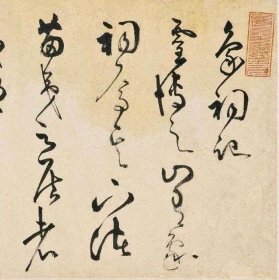 象祠記
靈博之山有象
祠焉其下諸
苗夷之居者